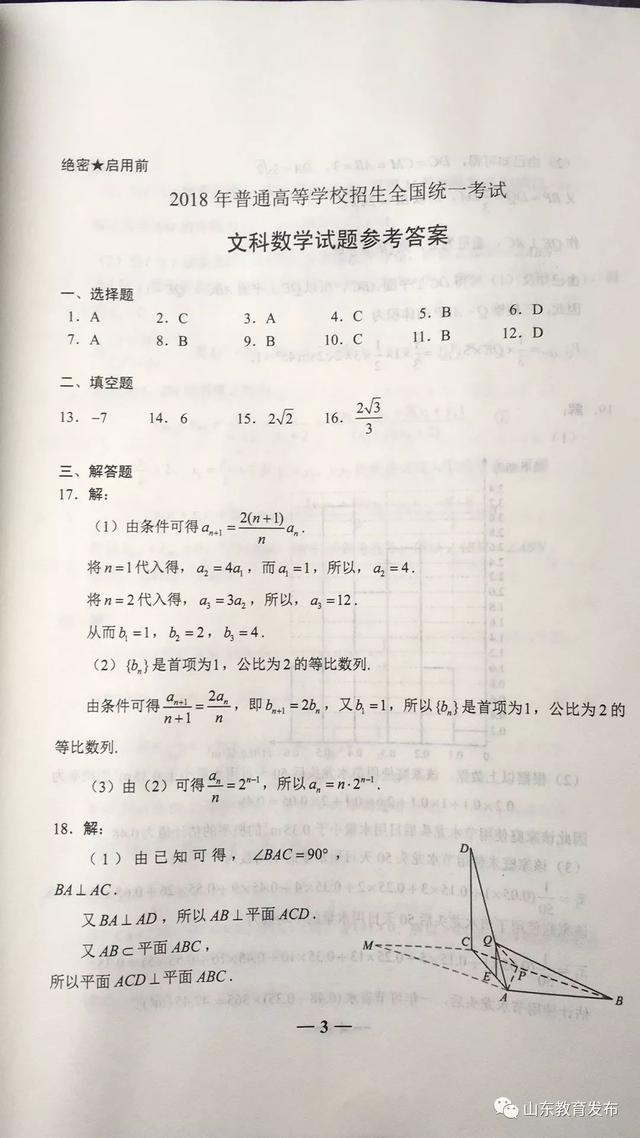 绝密★启用前
2018年普通高等学校招生全国统一考试
文科数学试题参考答案
一、选择题
1. A 2. C 3. A 4. C 5. B 6. D
7. A 8. B 9. B 10. C 11. B 12. D
二、填空题
13. −7 14. 6 15. 2√2 16. 2√3/3
三、解答题
17. 解:
(1) 由条件可得 aₙ₊₁ = 2(n+1)/n aₙ.
将 n=1 代入得, a₂ = 4a₁, 而 a₁ = 1, 所以, a₂ = 4.
将 n=2 代入得, a₃ = 3a₂, 所以, a₃ = 12.
从而 b₁ = 1, b₂ = 2, b₃ = 4.
(2) {bₙ} 是首项为1, 公比为2的等比数列.
由条件可得 aₙ₊₁/(n+1) = 2aₙ/n, 即 bₙ₊₁ = 2bₙ, 又 b₁ = 1, 所以 {bₙ} 是首项为1, 公比为2的
等比数列.
(3) 由(2)可得 aₙ/n = 2ⁿ⁻¹, 所以 aₙ = n·2ⁿ⁻¹.
18. 解:
(1) 由已知可得, ∠BAC = 90°,
BA⊥AC.
又 BA⊥AD, 所以 AB⊥平面 ACD.
又 AB⊂平面 ABC,
所以平面 ACD⊥平面 ABC.
D
M
C
Q
P
E
A
B
— 3 —
山东教育发布